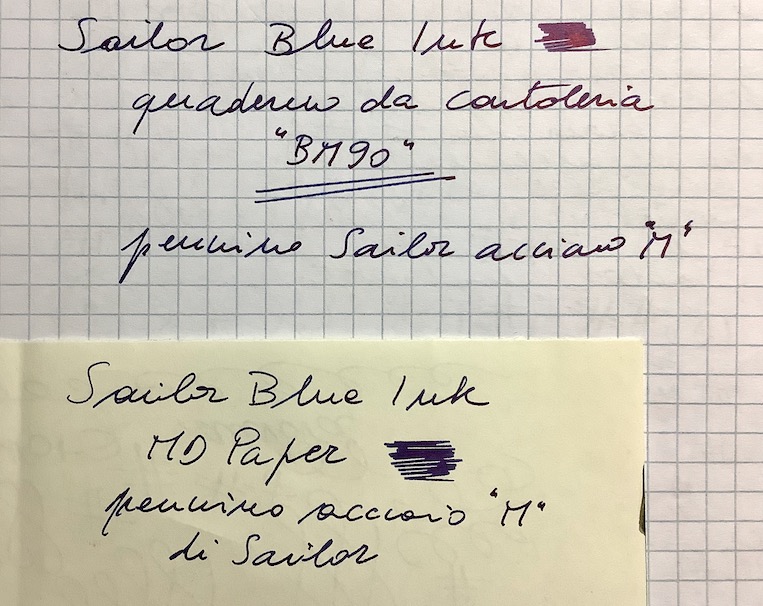 Sailor Blue Ink
quaderno da cartoleria
"BM90"
pennino Sailor acciaio "M"
Sailor Blue Ink
MD Paper
pennino acciaio "M"
di Sailor